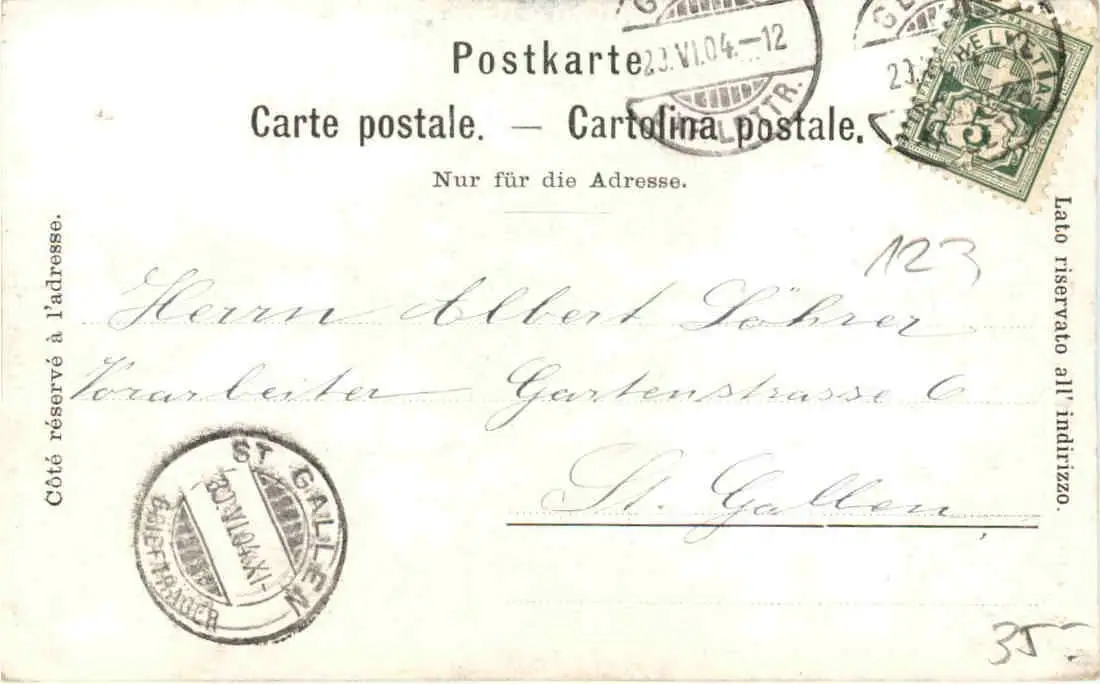 Postkarte.
Carte postale. — Cartolina postale.
Nur für die Adresse.
Côté réservé à l'adresse.
Lato riservato all' indirizzo.
VI.04.—12
HELVETIA
5
123
Herrn Albert Löhrer
Vorarbeiter Gartenstrasse 6
St. Gallen
ST. GALLEN
VI.04.XI-
BRIEFTRÄGER
35.-